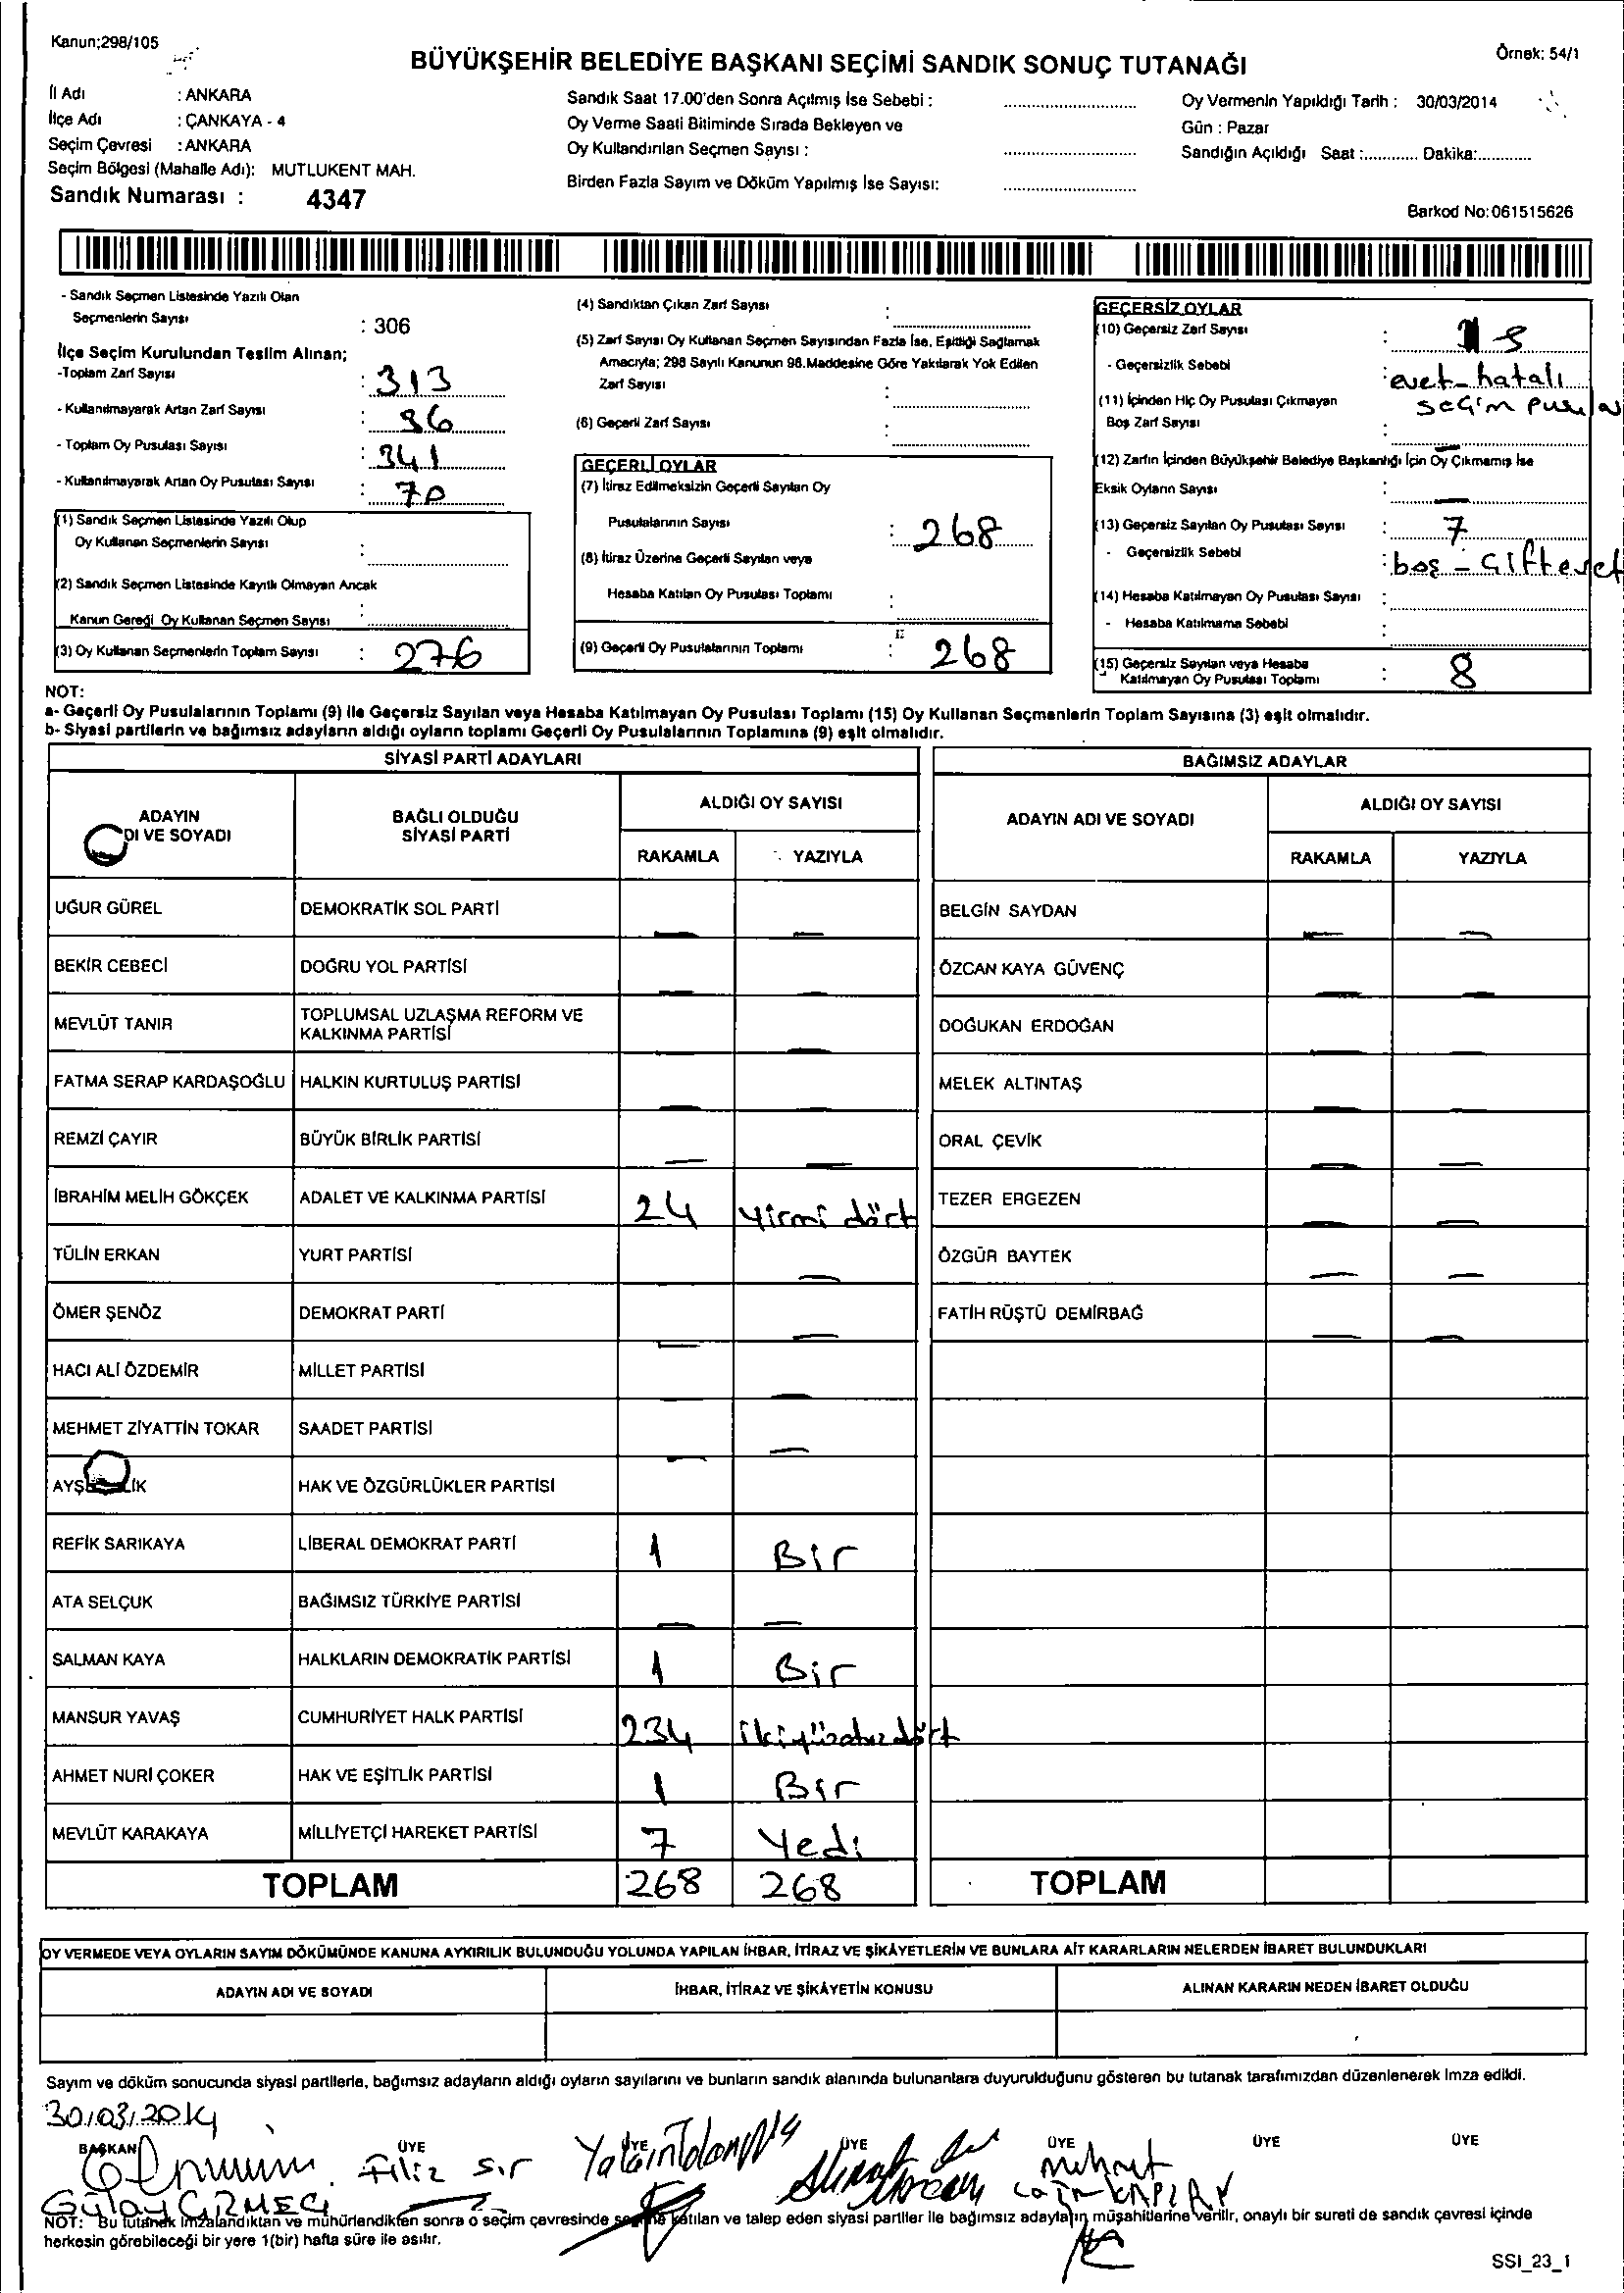 Kanun;298/105
BÜYÜKŞEHİR BELEDİYE BAŞKANI SEÇİMİ SANDIK SONUÇ TUTANAĞI
Örnek: 54/1
İl Adı : ANKARA
İlçe Adı : ÇANKAYA - 4
Seçim Çevresi : ANKARA
Seçim Bölgesi (Mahalle Adı): MUTLUKENT MAH.
Sandık Numarası : 4347
Sandık Saat 17.00'den Sonra Açılmış İse Sebebi :
Oy Verme Saati Bitiminde Sırada Bekleyen ve
Oy Kullandırılan Seçmen Sayısı :
Birden Fazla Sayım ve Döküm Yapılmış İse Sayısı:
Oy Vermenin Yapıldığı Tarih : 30/03/2014
Gün : Pazar
Sandığın Açıldığı Saat :............ Dakika:............
Barkod No:061515626
- Sandık Seçmen Listesinde Yazılı Olan
Seçmenlerin Sayısı : 306
İlçe Seçim Kurulundan Teslim Alınan;
-Toplam Zarf Sayısı : 313
- Kullanılmayarak Artan Zarf Sayısı : 36
- Toplam Oy Pusulası Sayısı : 341
- Kullanılmayarak Artan Oy Pusulası Sayısı : 70
(1) Sandık Seçmen Listesinde Yazılı Olup
Oy Kullanan Seçmenlerin Sayısı :
(2) Sandık Seçmen Listesinde Kayıtlı Olmayan Ancak
Kanun Gereği Oy Kullanan Seçmen Sayısı :
(3) Oy Kullanan Seçmenlerin Toplam Sayısı : 276
(4) Sandıktan Çıkan Zarf Sayısı :
(5) Zarf Sayısı Oy Kullanan Seçmen Sayısından Fazla İse, Eşitliği Sağlamak
Amacıyla; 298 Sayılı Kanunun 98.Maddesine Göre Yakılarak Yok Edilen
Zarf Sayısı :
(6) Geçerli Zarf Sayısı :
GEÇERLİ OYLAR
(7) İtiraz Edilmeksizin Geçerli Sayılan Oy
Pusulalarının Sayısı : 268
(8) İtiraz Üzerine Geçerli Sayılan veya
Hesaba Katılan Oy Pusulası Toplamı :
(9) Geçerli Oy Pusulalarının Toplamı : 268
GEÇERSİZ OYLAR
(10) Geçersiz Zarf Sayısı :
- Geçersizlik Sebebi : evet - hatalı
seçim
(11) İçinden Hiç Oy Pusulası Çıkmayan
Boş Zarf Sayısı : —
(12) Zarfın İçinden Büyükşehir Belediye Başkanlığı İçin Oy Çıkmamış İse
Eksik Oyların Sayısı : —
(13) Geçersiz Sayılan Oy Pusulası Sayısı : 7
- Geçersizlik Sebebi : boş - çift evet
(14) Hesaba Katılmayan Oy Pusulası Sayısı :
- Hesaba Katılmama Sebebi :
(15) Geçersiz Sayılan veya Hesaba
Katılmayan Oy Pusulası Toplamı : 8
NOT:
a- Geçerli Oy Pusulalarının Toplamı (9) ile Geçersiz Sayılan veya Hesaba Katılmayan Oy Pusulası Toplamı (15) Oy Kullanan Seçmenlerin Toplam Sayısına (3) eşit olmalıdır.
b- Siyasi partilerin ve bağımsız adayların aldığı oyların toplamı Geçerli Oy Pusulalarının Toplamına (9) eşit olmalıdır.
SİYASİ PARTİ ADAYLARI
ADAYIN
DI VE SOYADI
BAĞLI OLDUĞU
SİYASİ PARTİ
ALDIĞI OY SAYISI
RAKAMLA YAZIYLA
UĞUR GÜREL DEMOKRATİK SOL PARTİ — —
BEKİR CEBECİ DOĞRU YOL PARTİSİ — —
MEVLÜT TANIR TOPLUMSAL UZLAŞMA REFORM VE
KALKINMA PARTİSİ —
FATMA SERAP KARDAŞOĞLU HALKIN KURTULUŞ PARTİSİ — —
REMZİ ÇAYIR BÜYÜK BİRLİK PARTİSİ — —
İBRAHİM MELİH GÖKÇEK ADALET VE KALKINMA PARTİSİ 24 Yirmi dört
TÜLİN ERKAN YURT PARTİSİ —
ÖMER ŞENÖZ DEMOKRAT PARTİ — —
HACI ALİ ÖZDEMİR MİLLET PARTİSİ —
MEHMET ZİYATTİN TOKAR SAADET PARTİSİ — —
HAK VE ÖZGÜRLÜKLER PARTİSİ
REFİK SARIKAYA LİBERAL DEMOKRAT PARTİ 1 Bir
ATA SELÇUK BAĞIMSIZ TÜRKİYE PARTİSİ — —
SALMAN KAYA HALKLARIN DEMOKRATİK PARTİSİ 1 Bir
MANSUR YAVAŞ CUMHURİYET HALK PARTİSİ 234 ikiyüzotuzdört
AHMET NURİ ÇOKER HAK VE EŞİTLİK PARTİSİ 1 Bir
MEVLÜT KARAKAYA MİLLİYETÇİ HAREKET PARTİSİ 7 Yedi
TOPLAM 268 268
BAĞIMSIZ ADAYLAR
ADAYIN ADI VE SOYADI
ALDIĞI OY SAYISI
RAKAMLA YAZIYLA
BELGİN SAYDAN — —
ÖZCAN KAYA GÜVENÇ — —
DOĞUKAN ERDOĞAN — —
MELEK ALTINTAŞ — —
ORAL ÇEVİK — —
TEZER ERGEZEN — —
ÖZGÜR BAYTEK — —
FATİH RÜŞTÜ DEMİRBAĞ — —
TOPLAM
OY VERMEDE VEYA OYLARIN SAYIM DÖKÜMÜNDE KANUNA AYKIRILIK BULUNDUĞU YOLUNDA YAPILAN İHBAR, İTİRAZ VE ŞİKÂYETLERİN VE BUNLARA AİT KARARLARIN NELERDEN İBARET BULUNDUKLARI
ADAYIN ADI VE SOYADI İHBAR, İTİRAZ VE ŞİKÂYETİN KONUSU ALINAN KARARIN NEDEN İBARET OLDUĞU
Sayım ve döküm sonucunda siyasi partilerle, bağımsız adayların aldığı oyların sayılarını ve bunların sandık alanında bulunanlara duyurulduğunu gösteren bu tutanak tarafımızdan düzenlenerek imza edildi.
30/03/2014
BAŞKAN ÜYE ÜYE ÜYE ÜYE ÜYE ÜYE
Filiz Sır
Mehmet
KAPLAN
Gülay
NOT: Bu tutanak imzalandıktan ve mühürlendikten sonra o seçim çevresinde seçime katılan ve talep eden siyasi partiler ile bağımsız adayların müşahitlerine verilir, onaylı bir sureti de sandık çevresi içinde
herkesin görebileceği bir yere 1(bir) hafta süre ile asılır.
SSI_23_1